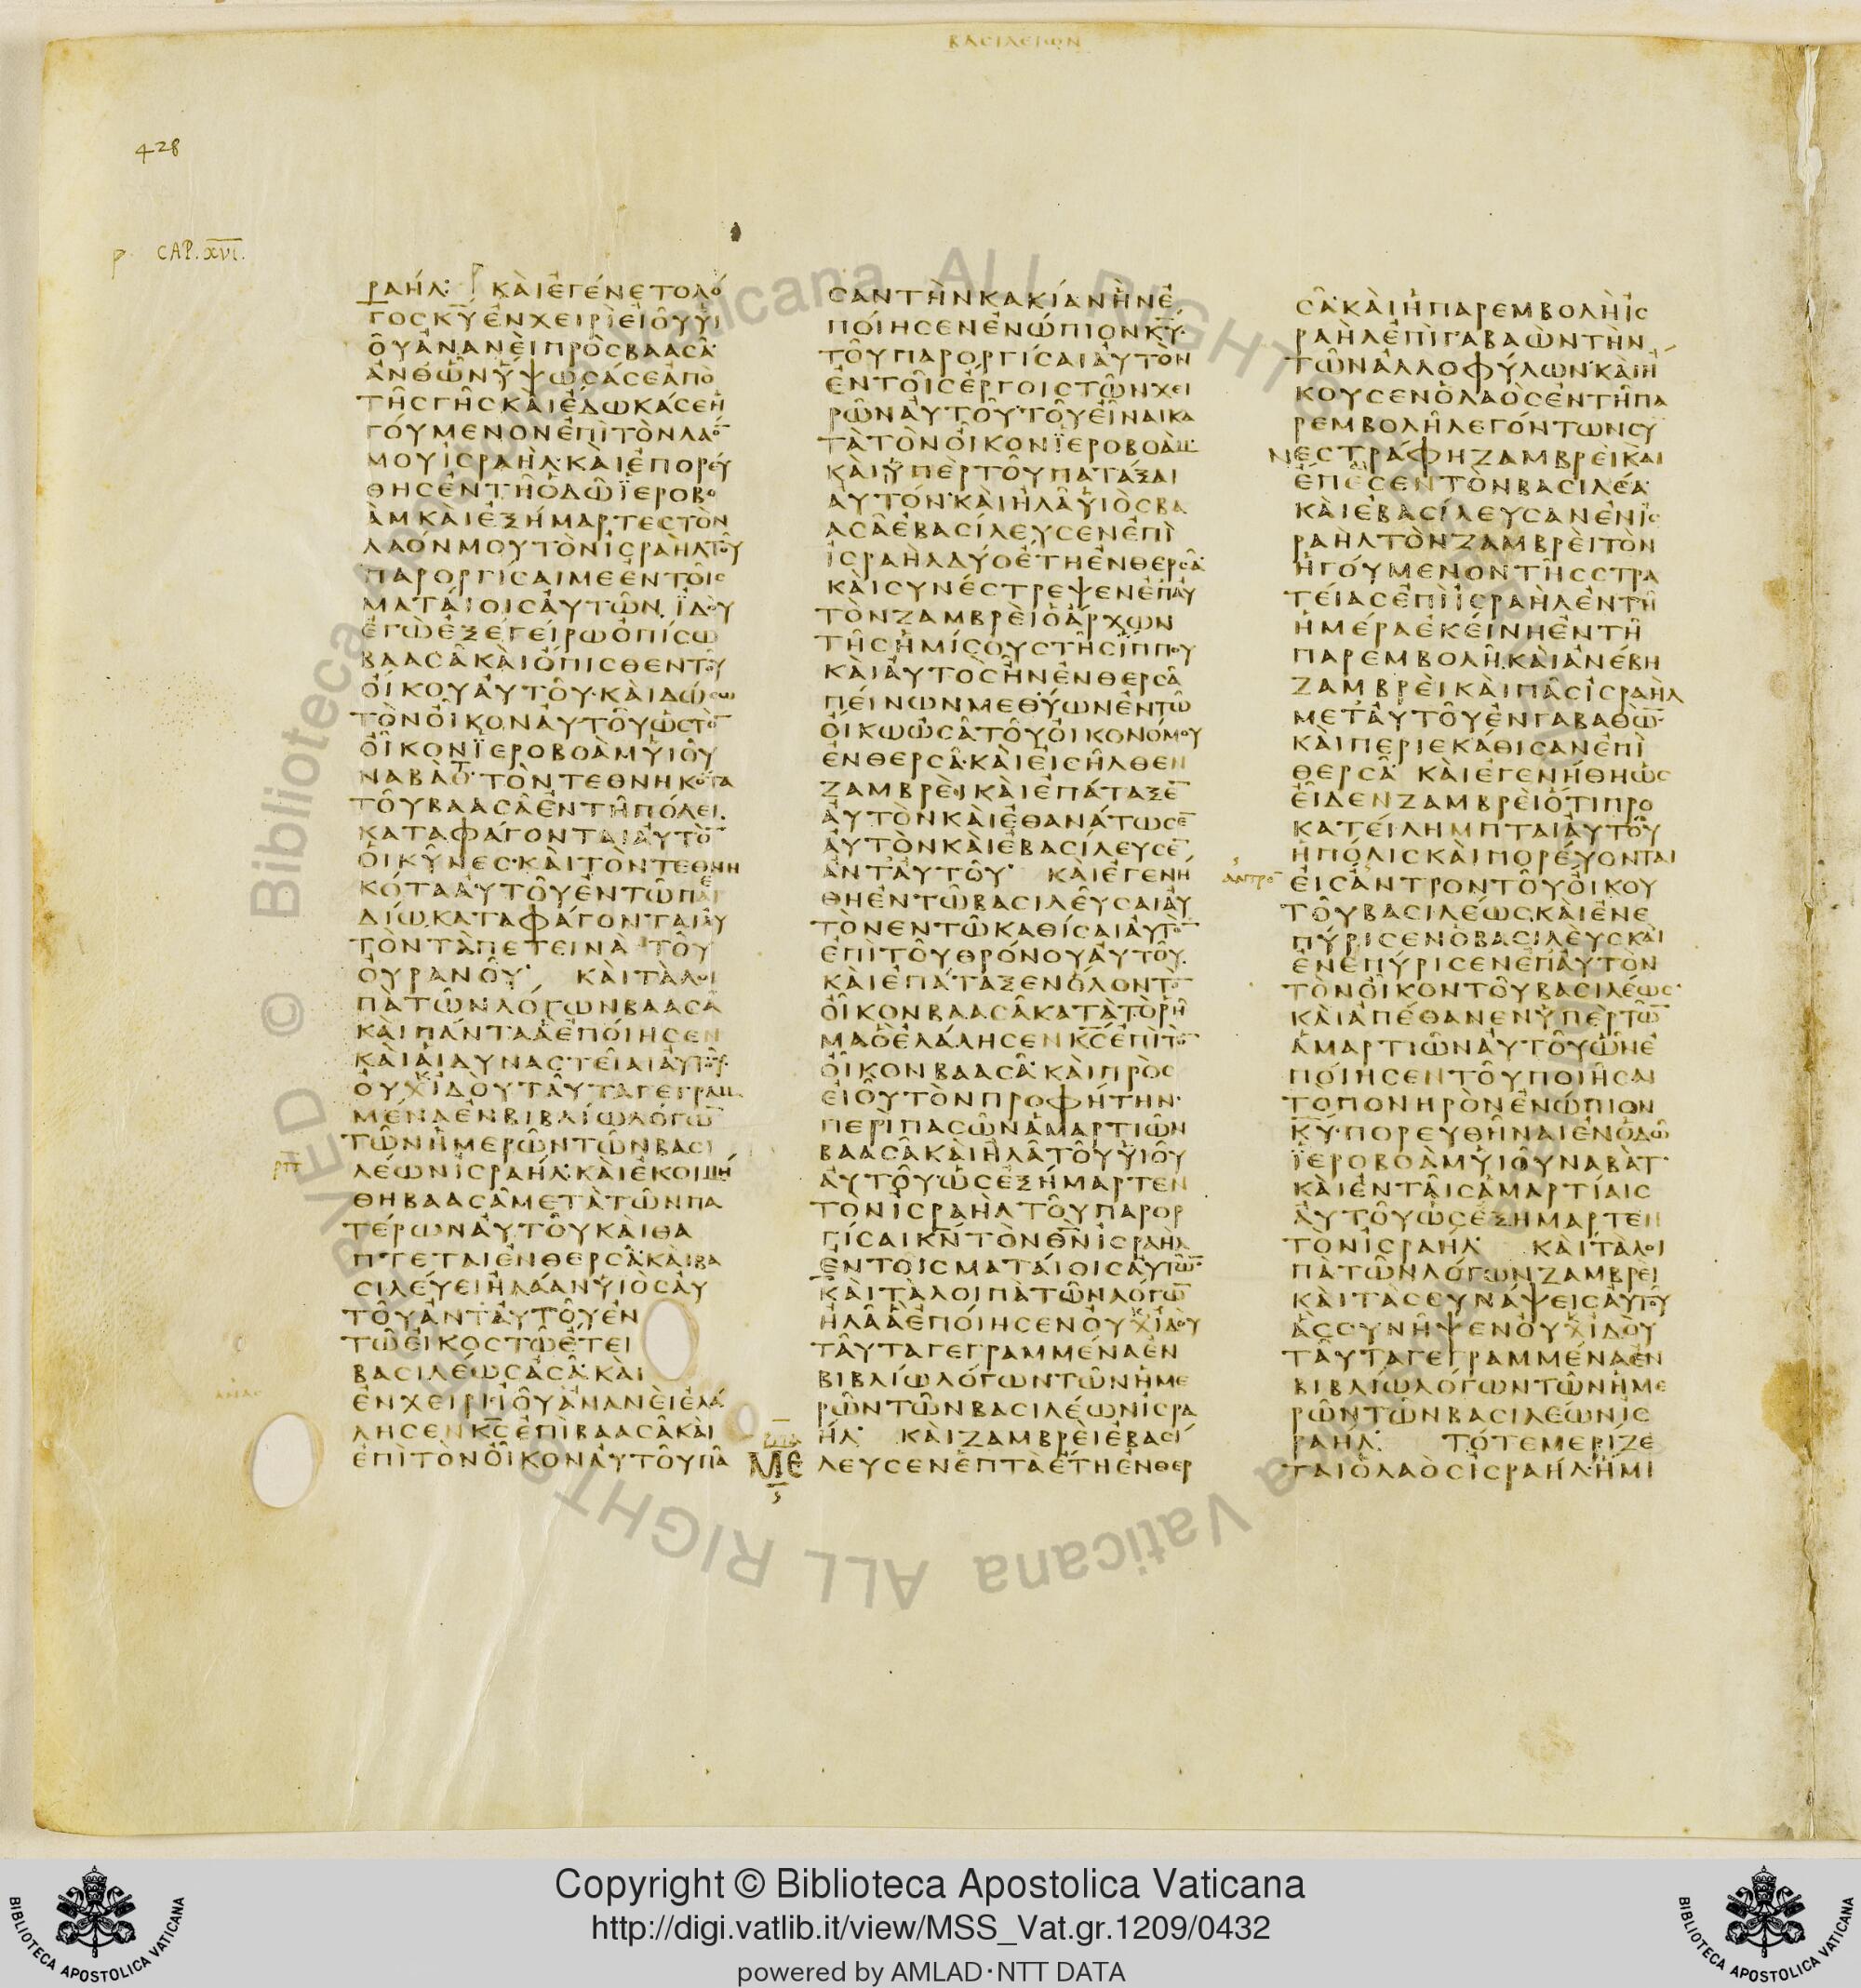 ΒΑCΙΛΕΙΩΝ
428
p. CAP. xvi.
ΡΑΗΛ· ΚΑΙΕΓΕΝΕΤΟΛΟ
ΓΟCΚΥΕΝΧΕΙΡΙΕΙΟΥΥΙ
ΟΥΑΝΑΝΕΙΠΡΟCΒΑΑCΑ·
ΑΝΘΩΝΥΨΩCΑCΕΑΠΟ
ΤΗCΓΗCΚΑΙΕΔΩΚΑCΕΗ
ΓΟΥΜΕΝΟΝΕΠΙΤΟΝΛΑΟ̅
ΜΟΥΙCΡΑΗΛ·ΚΑΙΕΠΟΡΕΥ
ΘΗCΕΝΤΗΟΔΩΙΕΡΟΒΟ
ΑΜΚΑΙΕΞΗΜΑΡΤΕCΤΟΝ
ΛΑΟΝΜΟΥΤΟΝΙCΡΑΗΛΤΟΥ
ΠΑΡΟΡΓΙCΑΙΜΕΕΝΤΟΙC
ΜΑΤΑΙΟΙCΑΥΤΩΝ·ΙΔΟΥ
ΕΓΩΕΞΕΓΕΙΡΩΟΠΙCΩ
ΒΑΑCΑΚΑΙΟΠΙCΘΕΝΤΟΥ
ΟΙΚΟΥΑΥΤΟΥ·ΚΑΙΔΩCΩ
ΤΟΝΟΙΚΟΝΑΥΤΟΥΩCΤΟ̅
ΟΙΚΟΝΙΕΡΟΒΟΑΜΥΙΟΥ
ΝΑΒΑΤ·ΤΟΝΤΕΘΝΗΚΟΤΑ
ΤΟΥΒΑΑCΑΕΝΤΗΠΟΛΕΙ·
ΚΑΤΑΦΑΓΟΝΤΑΙΑΥΤΟ̅
ΟΙΚΥΝΕC·ΚΑΙΤΟΝΤΕΘΝΗ
ΚΟΤΑΑΥΤΟΥΕΝΤΩΠΑΙ
ΔΙΩΚΑΤΑΦΑΓΟΝΤΑΙΑΥ
ΤΟΝΤΑΠΕΤΕΙΝΑ ΤΟΥ
ΟΥΡΑΝΟΥ· ΚΑΙΤΑΛΟΙ
ΠΑΤΩΝΛΟΓΩΝΒΑΑCΑ
ΚΑΙΠΑΝΤΑΑΕΠΟΙΗCΕΝ
ΚΑΙΑΙΔΥΝΑCΤΕΙΑΙΑΥΤΟΥ·
ΟΥΧΙΔΟΥΤΑΥΤΑΓΕΓΡΑΜ
ΜΕΝΑΕΝΒΙΒΛΙΩΛΟΓΩ̅
ΤΩΝΗΜΕΡΩΝΤΩΝΒΑCΙ
ΛΕΩΝΙCΡΑΗΛ·ΚΑΙΕΚΟΙΜΗ
ΘΗΒΑΑCΑΜΕΤΑΤΩΝΠΑ
ΤΕΡΩΝΑΥΤΟΥΚΑΙΘΑ
ΠΤΕΤΑΙΕΝΘΕΡCΑ·ΚΑΙΒΑ
CΙΛΕΥΕΙΗΛΑΑΝΥΙΟCΑΥ
ΤΟΥΑΝΤΑΥΤΟΥΕΝ
ΤΩΕΙΚΟCΤΩΕΤΕΙ
ΒΑCΙΛΕΩCΑCΑ·ΚΑΙ
ΕΝΧΕΙΡΙΙΟΥΑΝΑΝΕΙΕΛΑ
ΛΗCΕΝΚ̅C̅ΕΠΙΒΑΑCΑΚΑΙ
ΕΠΙΤΟΝΟΙΚΟΝΑΥΤΟΥΠΑ
CΑΝΤΗΝΚΑΚΙΑΝΗΝΕ
ΠΟΙΗCΕΝΕΝΩΠΙΟΝΚ̅Υ̅·
ΤΟΥΠΑΡΟΡΓΙCΑΙΑΥΤΟΝ
ΕΝΤΟΙCΕΡΓΟΙCΤΩΝΧΕΙ
ΡΩΝΑΥΤΟΥ·ΤΟΥΕΙΝΑΙΚΑ
ΤΑΤΟΝΟΙΚΟΝΙΕΡΟΒΟΑΜ·
ΚΑΙΥΠΕΡΤΟΥΠΑΤΑΞΑΙ
ΑΥΤΟΝ·ΚΑΙΗΛΑΥΙΟCΒΑ
ΑCΑΕΒΑCΙΛΕΥCΕΝΕΠΙ
ΙCΡΑΗΛΔΥΟΕΤΗΕΝΘΕΡCΑ·
ΚΑΙCΥΝΕCΤΡΕΨΕΝΕΠΑΥ
ΤΟΝΖΑΜΒΡΕΙΟΑΡΧΩΝ
ΤΗCΗΜΙCΟΥCΤΗCΙΠΠΟΥ
ΚΑΙΑΥΤΟCΗΝΕΝΘΕΡCΑ
ΠΕΙΝΩΝΜΕΘΥΩΝΕΝΤΩ
ΟΙΚΩΩCΑΤΟΥΟΙΚΟΝΟΜΟΥ
ΕΝΘΕΡCΑ·ΚΑΙΕΙCΗΛΘΕΝ
ΖΑΜΒΡΕΙΚΑΙΕΠΑΤΑΞΕ̅
ΑΥΤΟΝΚΑΙΕΘΑΝΑΤΩCΕ̅
ΑΥΤΟΝΚΑΙΕΒΑCΙΛΕΥCΕ̅
ΑΝΤΑΥΤΟΥ· ΚΑΙΕΓΕΝΗ
ΘΗΕΝΤΩΒΑCΙΛΕΥCΑΙΑΥ
ΤΟΝΕΝΤΩΚΑΘΙCΑΙΑΥΤΟ̅
ΕΠΙΤΟΥΘΡΟΝΟΥΑΥΤΟΥ·
ΚΑΙΕΠΑΤΑΞΕΝΟΛΟΝΤΟ̅
ΟΙΚΟΝΒΑΑCΑΚΑΤΑΤΟΡΗ
ΜΑΟΕΛΑΛΗCΕΝΚ̅C̅ΕΠΙΤΟ̅
ΟΙΚΟΝΒΑΑCΑ·ΚΑΙΠΡΟC
ΕΙΟΥΤΟΝΠΡΟΦΗΤΗΝ·
ΠΕΡΙΠΑCΩΝΑΜΑΡΤΙΩΝ
ΒΑΑCΑΚΑΙΗΛΑΤΟΥΥΙΟΥ
ΑΥΤΟΥ·ΩCΕΞΗΜΑΡΤΕΝ
ΤΟΝΙCΡΑΗΛΤΟΥΠΑΡΟΡ
ΓΙCΑΙΚ̅Ν̅ΤΟΝΘ̅Ν̅ΙCΡΑΗΛ
ΕΝΤΟΙCΜΑΤΑΙΟΙCΑΥΤΩ̅·
ΚΑΙΤΑΛΟΙΠΑΤΩΝΛΟΓΩ̅
ΗΛΑΑΕΠΟΙΗCΕΝΟΥΧΙΔΟΥ
ΤΑΥΤΑΓΕΓΡΑΜΜΕΝΑΕΝ
ΒΙΒΛΙΩΛΟΓΩΝΤΩΝΗΜΕ
ΡΩΝΤΩΝΒΑCΙΛΕΩΝΙCΡΑ
ΗΛ· ΚΑΙΖΑΜΒΡΕΙΕΒΑCΙ
ΛΕΥCΕΝΕΠΤΑΕΤΗΕΝΘΕΡ
CΑ·ΚΑΙΗΠΑΡΕΜΒΟΛΗΙC
ΡΑΗΛΕΠΙΓΑΒΑΩΝΤΗΝ
ΤΩΝΑΛΛΟΦΥΛΩΝ·ΚΑΙΗ
ΚΟΥCΕΝΟΛΑΟCΕΝΤΗΠΑ
ΡΕΜΒΟΛΗΛΕΓΟΝΤΩΝCΥ
ΝΕCΤΡΑΦΗΖΑΜΒΡΕΙΚΑΙ
ΕΠΕCΕΝΤΟΝΒΑCΙΛΕΑ·
ΚΑΙΕΒΑCΙΛΕΥCΑΝΕΝΙC
ΡΑΗΛΤΟΝΖΑΜΒΡΕΙΤΟΝ
ΗΓΟΥΜΕΝΟΝΤΗCCΤΡΑ
ΤΕΙΑCΕΠΙΙCΡΑΗΛΕΝΤΗ
ΗΜΕΡΑΕΚΕΙΝΗΕΝΤΗ
ΠΑΡΕΜΒΟΛΗ·ΚΑΙΑΝΕΒΗ
ΖΑΜΒΡΕΙΚΑΙΠΑCΙCΡΑΗΛ
ΜΕΤΑΥΤΟΥΕΝΓΑΒΑΘΩ̅·
ΚΑΙΠΕΡΙΕΚΑΘΙCΑΝΕΠΙ
ΘΕΡCΑ· ΚΑΙΕΓΕΝΗΘΗΩC
ΕΙΔΕΝΖΑΜΒΡΕΙΟΤΙΠΡΟ
ΚΑΤΕΙΛΗΜΠΤΑΙΑΥΤΟΥ
ΗΠΟΛΙCΚΑΙΠΟΡΕΥΟΝΤΑΙ
ΕΙCΑΝΤΡΟΝΤΟΥΟΙΚΟΥ
ΤΟΥΒΑCΙΛΕΩC·ΚΑΙΕΝΕ
ΠΥΡΙCΕΝΟΒΑCΙΛΕΥCΚΑΙ
ΕΝΕΠΥΡΙCΕΝΕΠΑΥΤΟΝ
ΤΟΝΟΙΚΟΝΤΟΥΒΑCΙΛΕΩC·
ΚΑΙΑΠΕΘΑΝΕΝΥΠΕΡΤΩ̅
ΑΜΑΡΤΙΩΝΑΥΤΟΥΩΝΕ
ΠΟΙΗCΕΝΤΟΥΠΟΙΗCΑΙ
ΤΟΠΟΝΗΡΟΝΕΝΩΠΙΟΝ
Κ̅Υ̅·ΠΟΡΕΥΘΗΝΑΙΕΝΟΔΩ
ΙΕΡΟΒΟΑΜΥΙΟΥΝΑΒΑΤ·
ΚΑΙΕΝΤΑΙCΑΜΑΡΤΙΑΙC
ΑΥΤΟΥΩCΕΞΗΜΑΡΤΕΝ
ΤΟΝΙCΡΑΗΛ· ΚΑΙΤΑΛΟΙ
ΠΑΤΩΝΛΟΓΩΝΖΑΜΒΡΕΙ
ΚΑΙΤΑCCΥΝΑΨΕΙCΑΥΤΟΥ
ΑCCΥΝΗΨΕΝΟΥΧΙΔΟΥ
ΤΑΥΤΑΓΕΓΡΑΜΜΕΝΑΕΝ
ΒΙΒΛΙΩΛΟΓΩΝΤΩΝΗΜΕ
ΡΩΝΤΩΝΒΑCΙΛΕΩΝΙC
ΡΑΗΛ· ΤΟΤΕΜΕΡΙΖΕ
ΤΑΙΟΛΑΟCΙCΡΑΗΛ·ΗΜΙ
© Biblioteca Apostolica Vaticana ALL RIGHTS RESERVED
Copyright © Biblioteca Apostolica Vaticana
http://digi.vatlib.it/view/MSS_Vat.gr.1209/0432
powered by AMLAD·NTT DATA
BIBLIOTECA APOSTOLICA VATICANA
BIBLIOTECA APOSTOLICA VATICANA